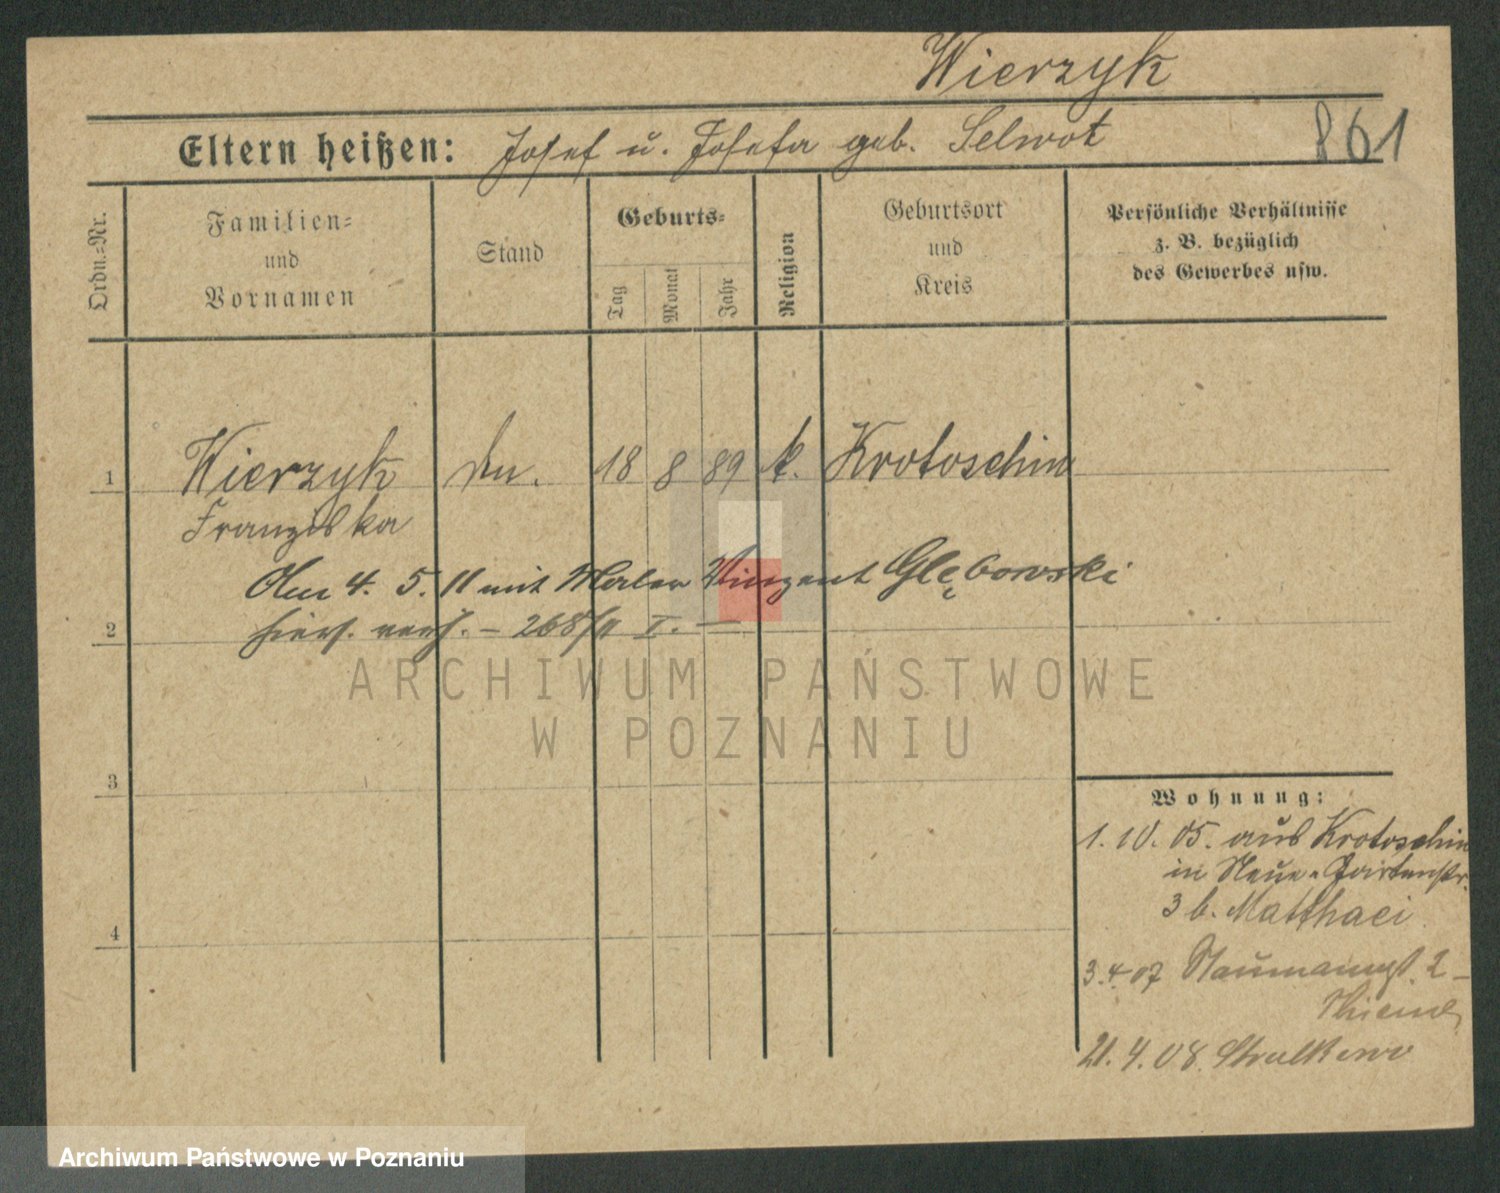 Wierzyk
861
Eltern heißen: Josef u. Josefa geb. Selwot
Ordn.=Nr.
Familien=
und
Vornamen
Stand
Geburts=
Tag
Monat
Jahr
Religion
Geburtsort
und
Kreis
Persönliche Verhältnisse
z. B. bezüglich
des Gewerbes usw.
1 Wierzyk 18 8 89 k. Krotoschin
Franziska
Am 4. 5. 11 mit Maler Vinzent Glębowski
2 hiers. verh. – 268/11 I. —
ARCHIWUM PAŃSTWOWE
W POZNANIU
3
4
Wohnung:
1. 10. 05. aus Krotoschin
in Neue-Gartenstr.
3 b. Matthaei
3.4.07 Naumannst. 2 –
Thiem
21.4.08.
Archiwum Państwowe w Poznaniu